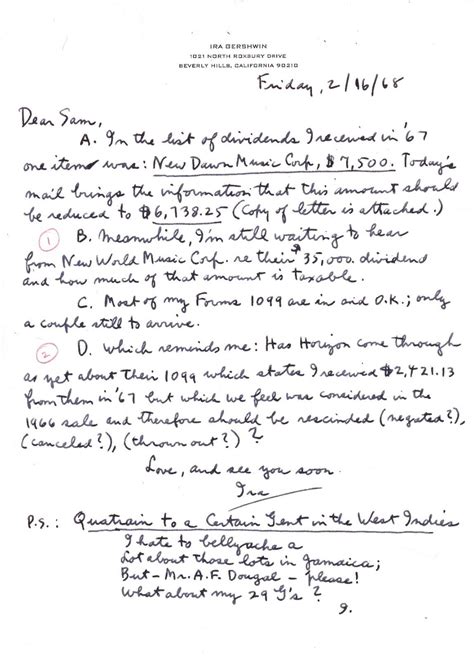 IRA GERSHWIN
1021 NORTH ROXBURY DRIVE
BEVERLY HILLS, CALIFORNIA 90210
Friday, 2/16/68
Dear Sam,
A. In the list of dividends I received in '67
one item was: New Dawn Music Corp, $7,500. Today's
mail brings the information that this amount should
be reduced to $6,738.25 (Copy of letter is attached.)
1 B. Meanwhile, I'm still waiting to hear
from New World Music Corp. re their $35,000. dividend
and how much of that amount is taxable.
C. Most of my Forms 1099 are in and O.K.; only
a couple still to arrive.
2 D. Which reminds me: Has Horizon come through
as yet about their 1099 which states I received $2,421.13
from them in '67 but which we feel was considered in the
1966 sale and therefore should be rescinded (negated?),
(canceled?), (thrown out?) ?
Love, and see you soon
Ira
P.S.: Quatrain to a Certain Gent in the West Indies
I hate to bellyache a
Lot about those lots in Jamaica;
But – Mr. A.F. Dougal – please!
What about my 29 G's ?
I.